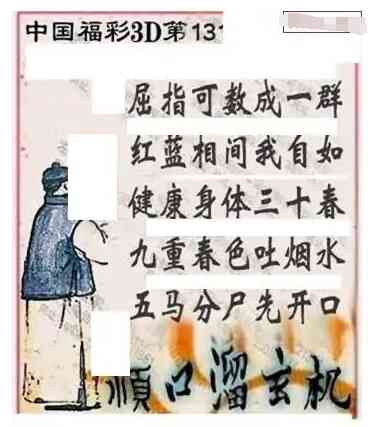 中国福彩3D第131
屈指可数成一群
红蓝相间我自如
健康身体三十春
九重春色吐烟水
五马分尸先开口
顺口溜玄机